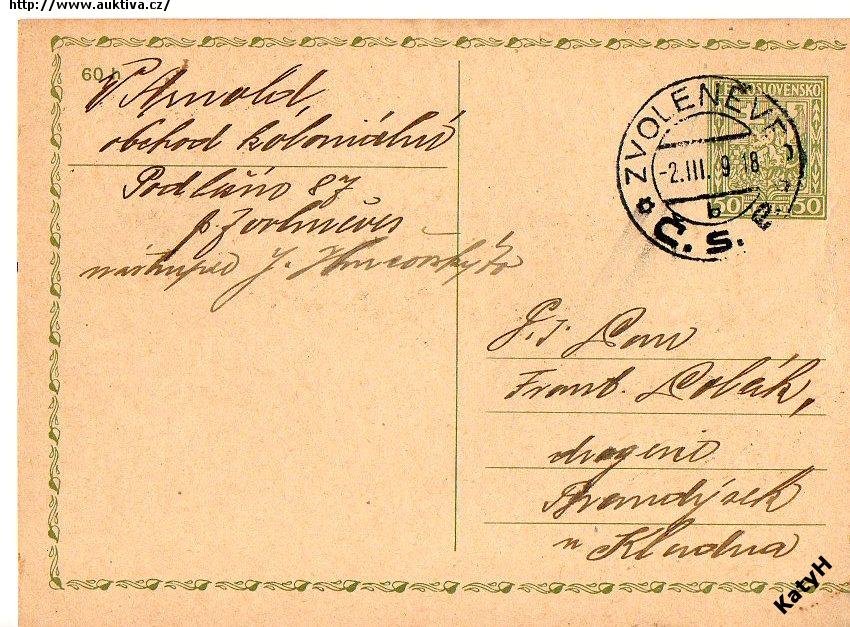 http://www.auktiva.cz/
60 h
V Arnold,
obchod koloniální
Podlâšín 87
p. Zvoleněves
ČESKOSLOVENSKO
50 50
ZVOLENĚVES
-2.III. 9 18
b
Č.S.P.
P. T. Pan
Frant. Polák,
drogerie
Brandýsek
u Kladna
KatyH